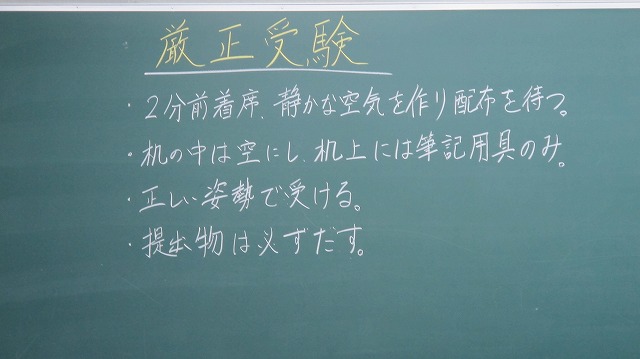 厳正受験
・2分前着席、静かな空気を作り配布を待つ。
・机の中は空にし、机上には筆記用具のみ。
・正しい姿勢で受ける。
・提出物は必ずだす。